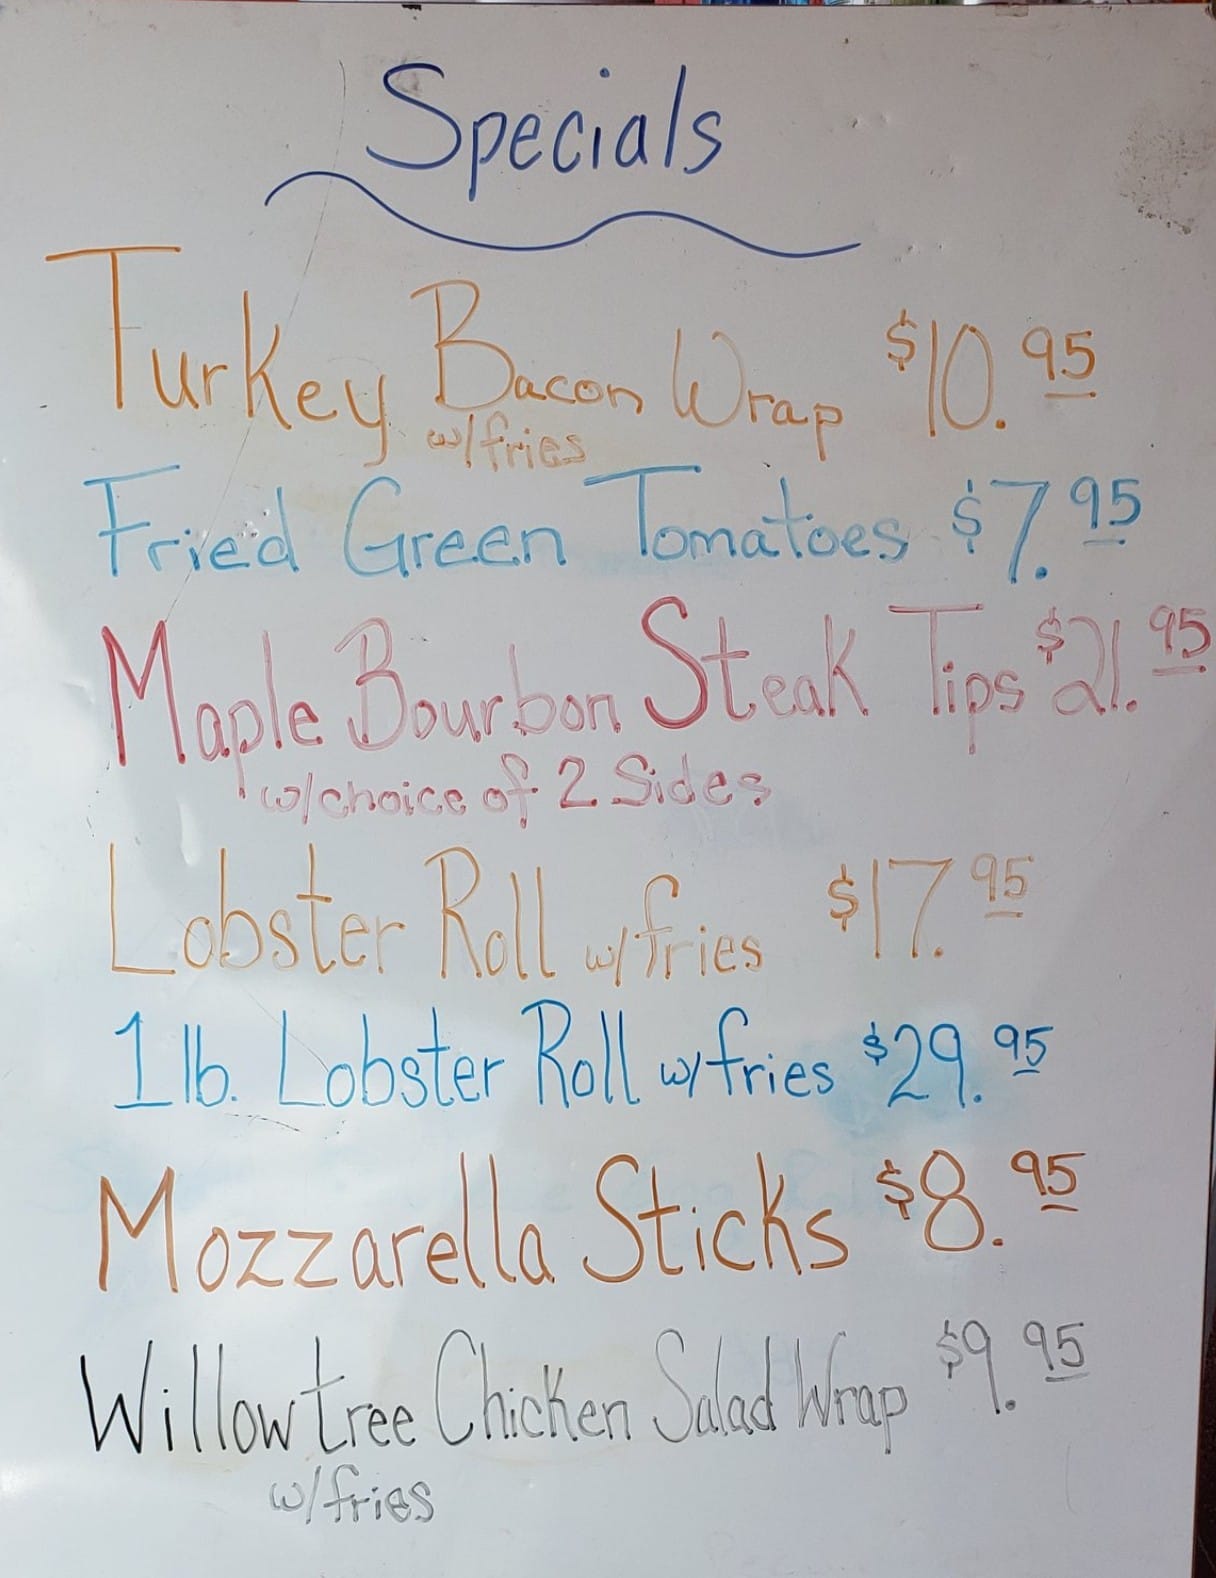 Specials
Turkey Bacon Wrap $10.95
w/fries
Fried Green Tomatoes $7.95
Maple Bourbon Steak Tips $21.95
w/choice of 2 Sides
Lobster Roll w/fries $17.95
1 lb. Lobster Roll w/fries $29.95
Mozzarella Sticks $8.95
Willowtree Chicken Salad Wrap $9.95
w/fries